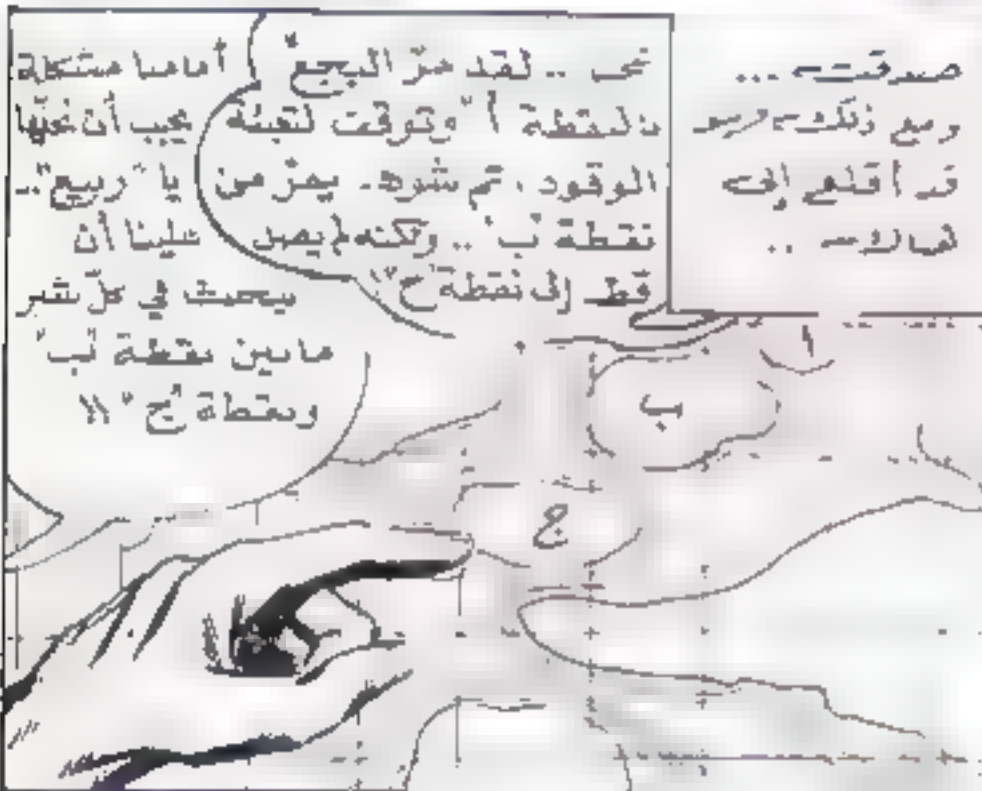 صدقت ...
ومع ذلك
قد أقلع إلى
نعم .. لقد مرّ البجع
بالنقطة "أ" وتوقف لتعبئة
الوقود، ثم شوهد يمرّ من
نقطة "ب" .. ولكنه لم يصل
قط إلى نقطة "ج"!
أمامنا مشكلة
يجب أن نحلّها
يا "ربيع" ..
علينا أن
نبحث في كلّ شبر
مابين نقطة "ب"
ونقطة "ج" !!
أ
ب
ج